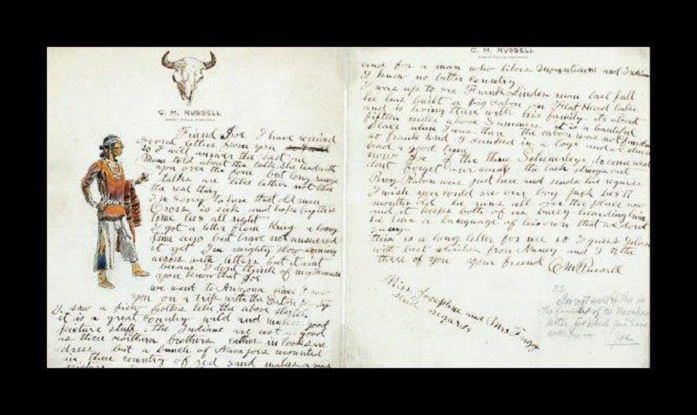 C. M. RUSSELL
GREAT FALLS, MONTANA
Friend Joe I have received
several letters from you
so I will answer the last one
Mam told about the talk she had with
you over the fone but long range
talks are like letters not like
the real thing
I'm sorry to hear that old man
Cross is sick and hope he gets
all right
I got a letter from Krieg a long
time ago but have not answered
it yet I'm mighty slow coming
across with letters but it aint
because I dont think of my friends
you know that Joe
we went to Arizona since I
you on a trip with the
I saw a fiew looks like the above sketch
it is a great country wild and makes good
picture stuff, the Indians are not as good
as these northern brothers either in looks or
dress but a bunch of Navajos mounted
in there country of red sand makes a
C. M. RUSSELL
GREAT FALLS, MONTANA
and for a man who likes mountains and Indians
I know no better country
I was up to see Frank Linden man last fall
he has built a big cabon on Flat Head lake
and is living there with his family its about
fifteen miles above Sumers it is a beautiful
place when I was there the cabon was not finished
so Frank and I camped in a loge and
had a good time
now Joe if the three Scheuerles do come west
dont forget our camp the lach strings out
Percy Raban was just here and sends his regards
I wish you could see our boy Jack hes 17
months old he runs all over the place now
and it keeps both of us busey hearding him
he has a language of his own that is
funny
this is a long letter for me so I guess I'll close
with best wishes from Nancy and I to the
three of you your friend CM Russell
Miss Josephine and Mrs Trigg
send regards
P.S.
Joe